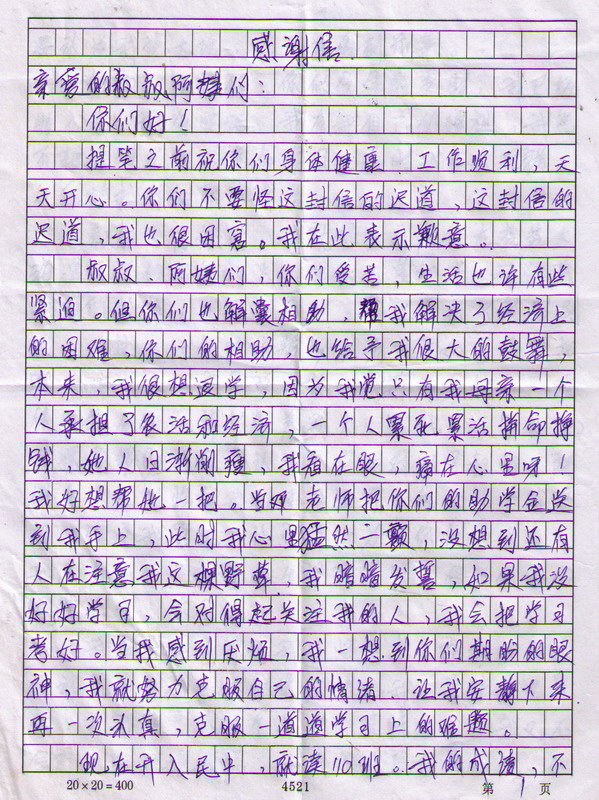 感谢信
亲爱的叔叔阿姨们：
你们好！
提笔之前祝你们身体健康、工作顺利，天
天开心。你们不要怪这封信的迟道，这封信的
迟道，我也很因害。我在此表示歉意。
叔叔、阿姨们，你们爱苦，生活也许有些
紧迫。但你们也解囊相助，帮我解决了经济上
的困难，你们的相助，也给予我很大的鼓舞，
本来，我很想退学，因为我觉只有我母亲一个
人承担了农活和经济，一个人累死累活拚命挣
钱，她人日渐削瘦，我看在眼，痛在心里呀！
我好想帮她一把。当 老师把你们的助学金送
到我手上，此时我心里猛然一颤，没想到还有
人在注意我这棵野草，我暗暗发誓，如果我没
好好学习，会对得起关注我的人，我会把学习
考好。当我感到厌烦，我一想到你们期盼的眼
神，我就努力克服自己的情绪、让我安静下来
再一次认真，克服一道道学习上的难题。
现在开入民中，就读110班。我的成绩，不
20×20=400 4521 第 1 页